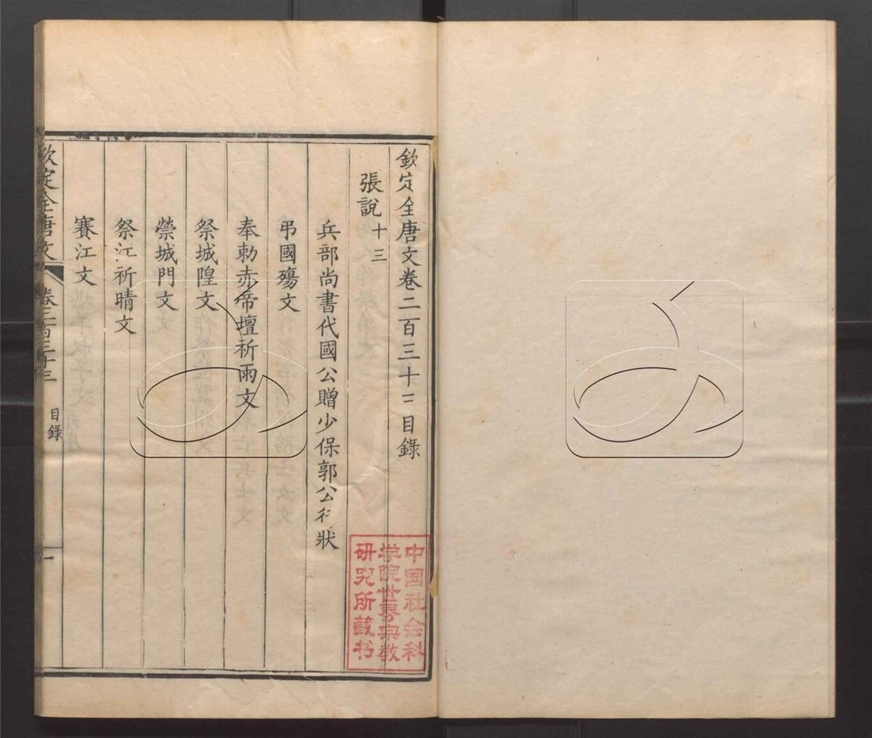 欽定全唐文卷二百三十三目錄
張說十三
兵部尚書代國公贈少保郭公行狀
弔國殤文
奉勅赤帝壇祈雨文
祭城隍文
禜城門文
祭江祈晴文
賽江文
欽定全唐文
卷二百三十三
目錄
一
中国社会科
学院世界宗教
研究所藏书